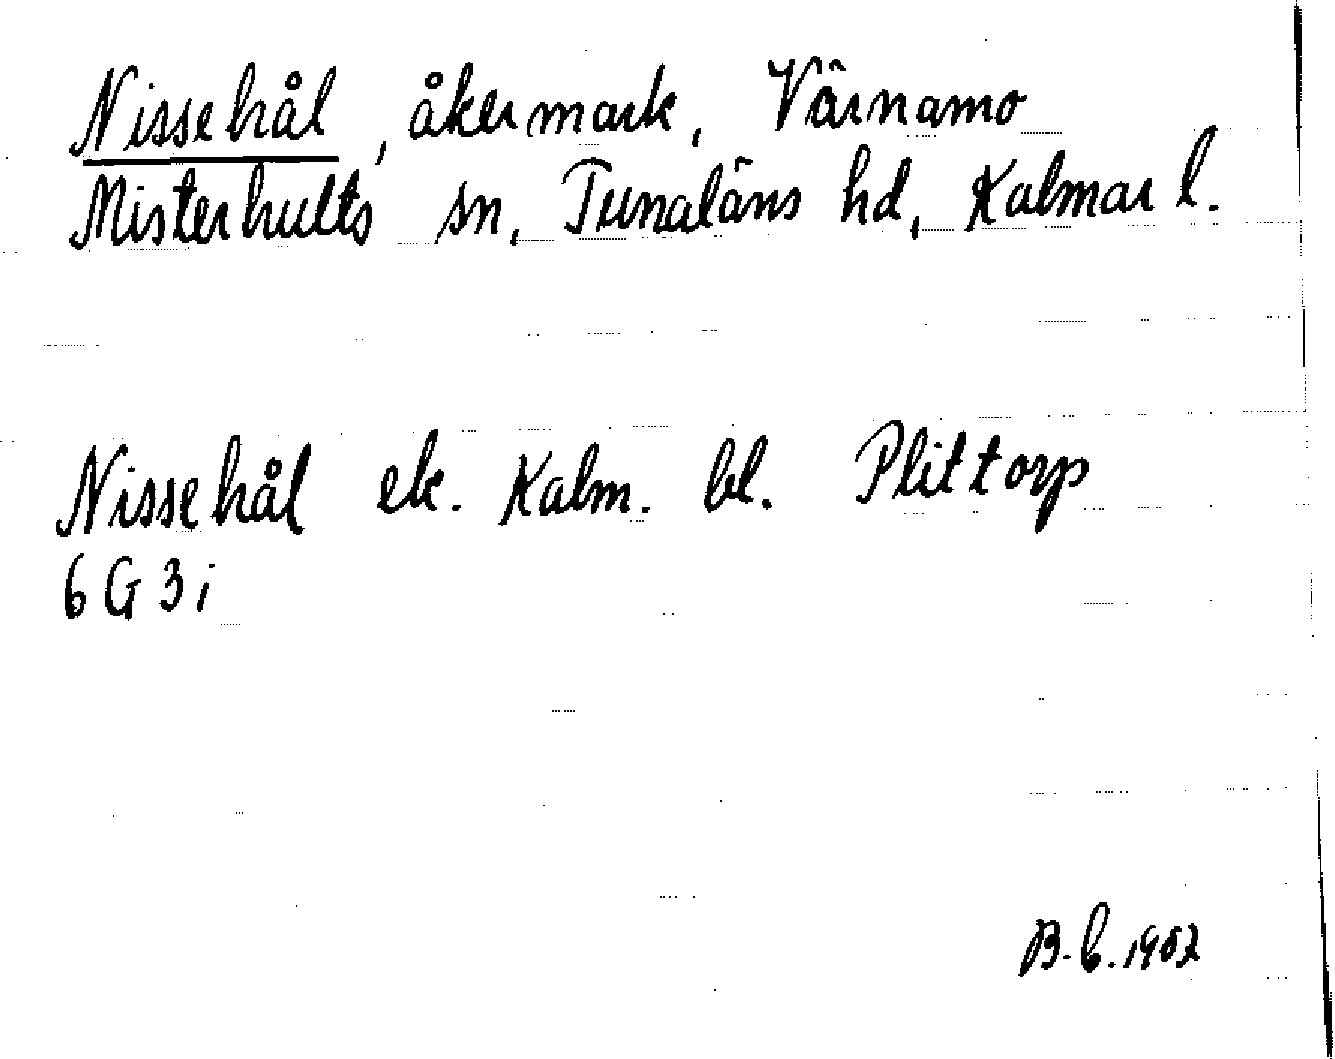 Nissehål, åkermark, Värnamo
Misterhults sn, Tunaläns hd, Kalmar l.
Nissehål ek. Kalm. bl. Plittorp
6G3i
B.L. 1952